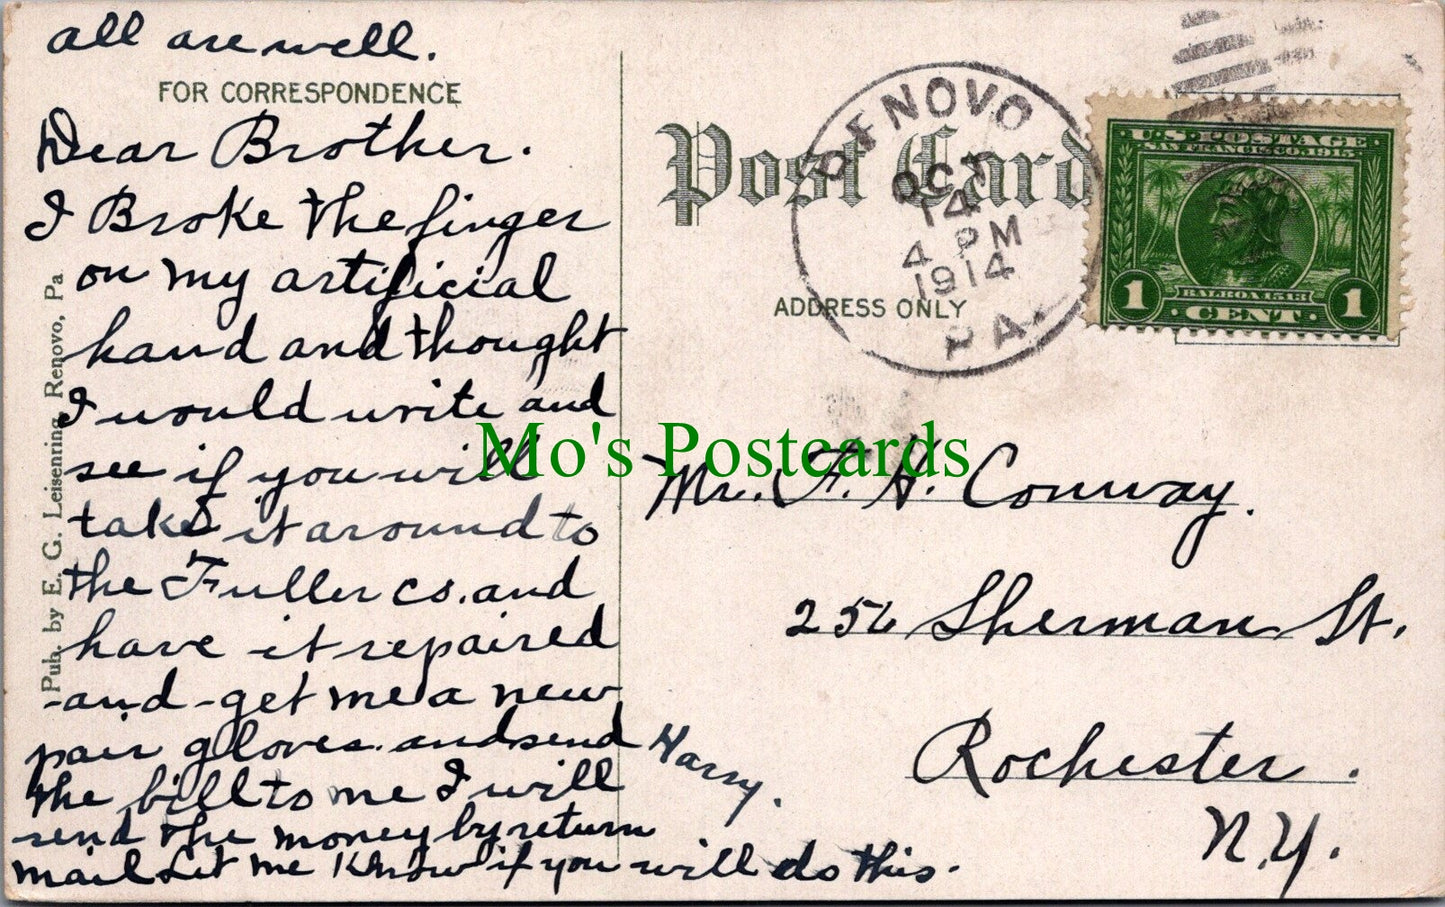 all are well.
FOR CORRESPONDENCE
Dear Brother.
I Broke the finger
on my artificial
hand and thought
I would write and
see if you will
take it around to
the Fuller Co. and
have it repaired
and get me a new
pair gloves. and send
the bill to me I will
send the money by return
mail Let me Know if you will do this.
Harry.
Pub. by E. G. Leisenring, Renovo, Pa.
Post Card
ADDRESS ONLY
RENOVO
OCT
14
4 PM
1914
PA.
U.S. POSTAGE
SAN FRANCISCO, 1915
BALBOA 1513
1 CENT 1
Mo's Postcards
Mr. F. H. Conway.
Sherman St.
Rochester.
N.Y.